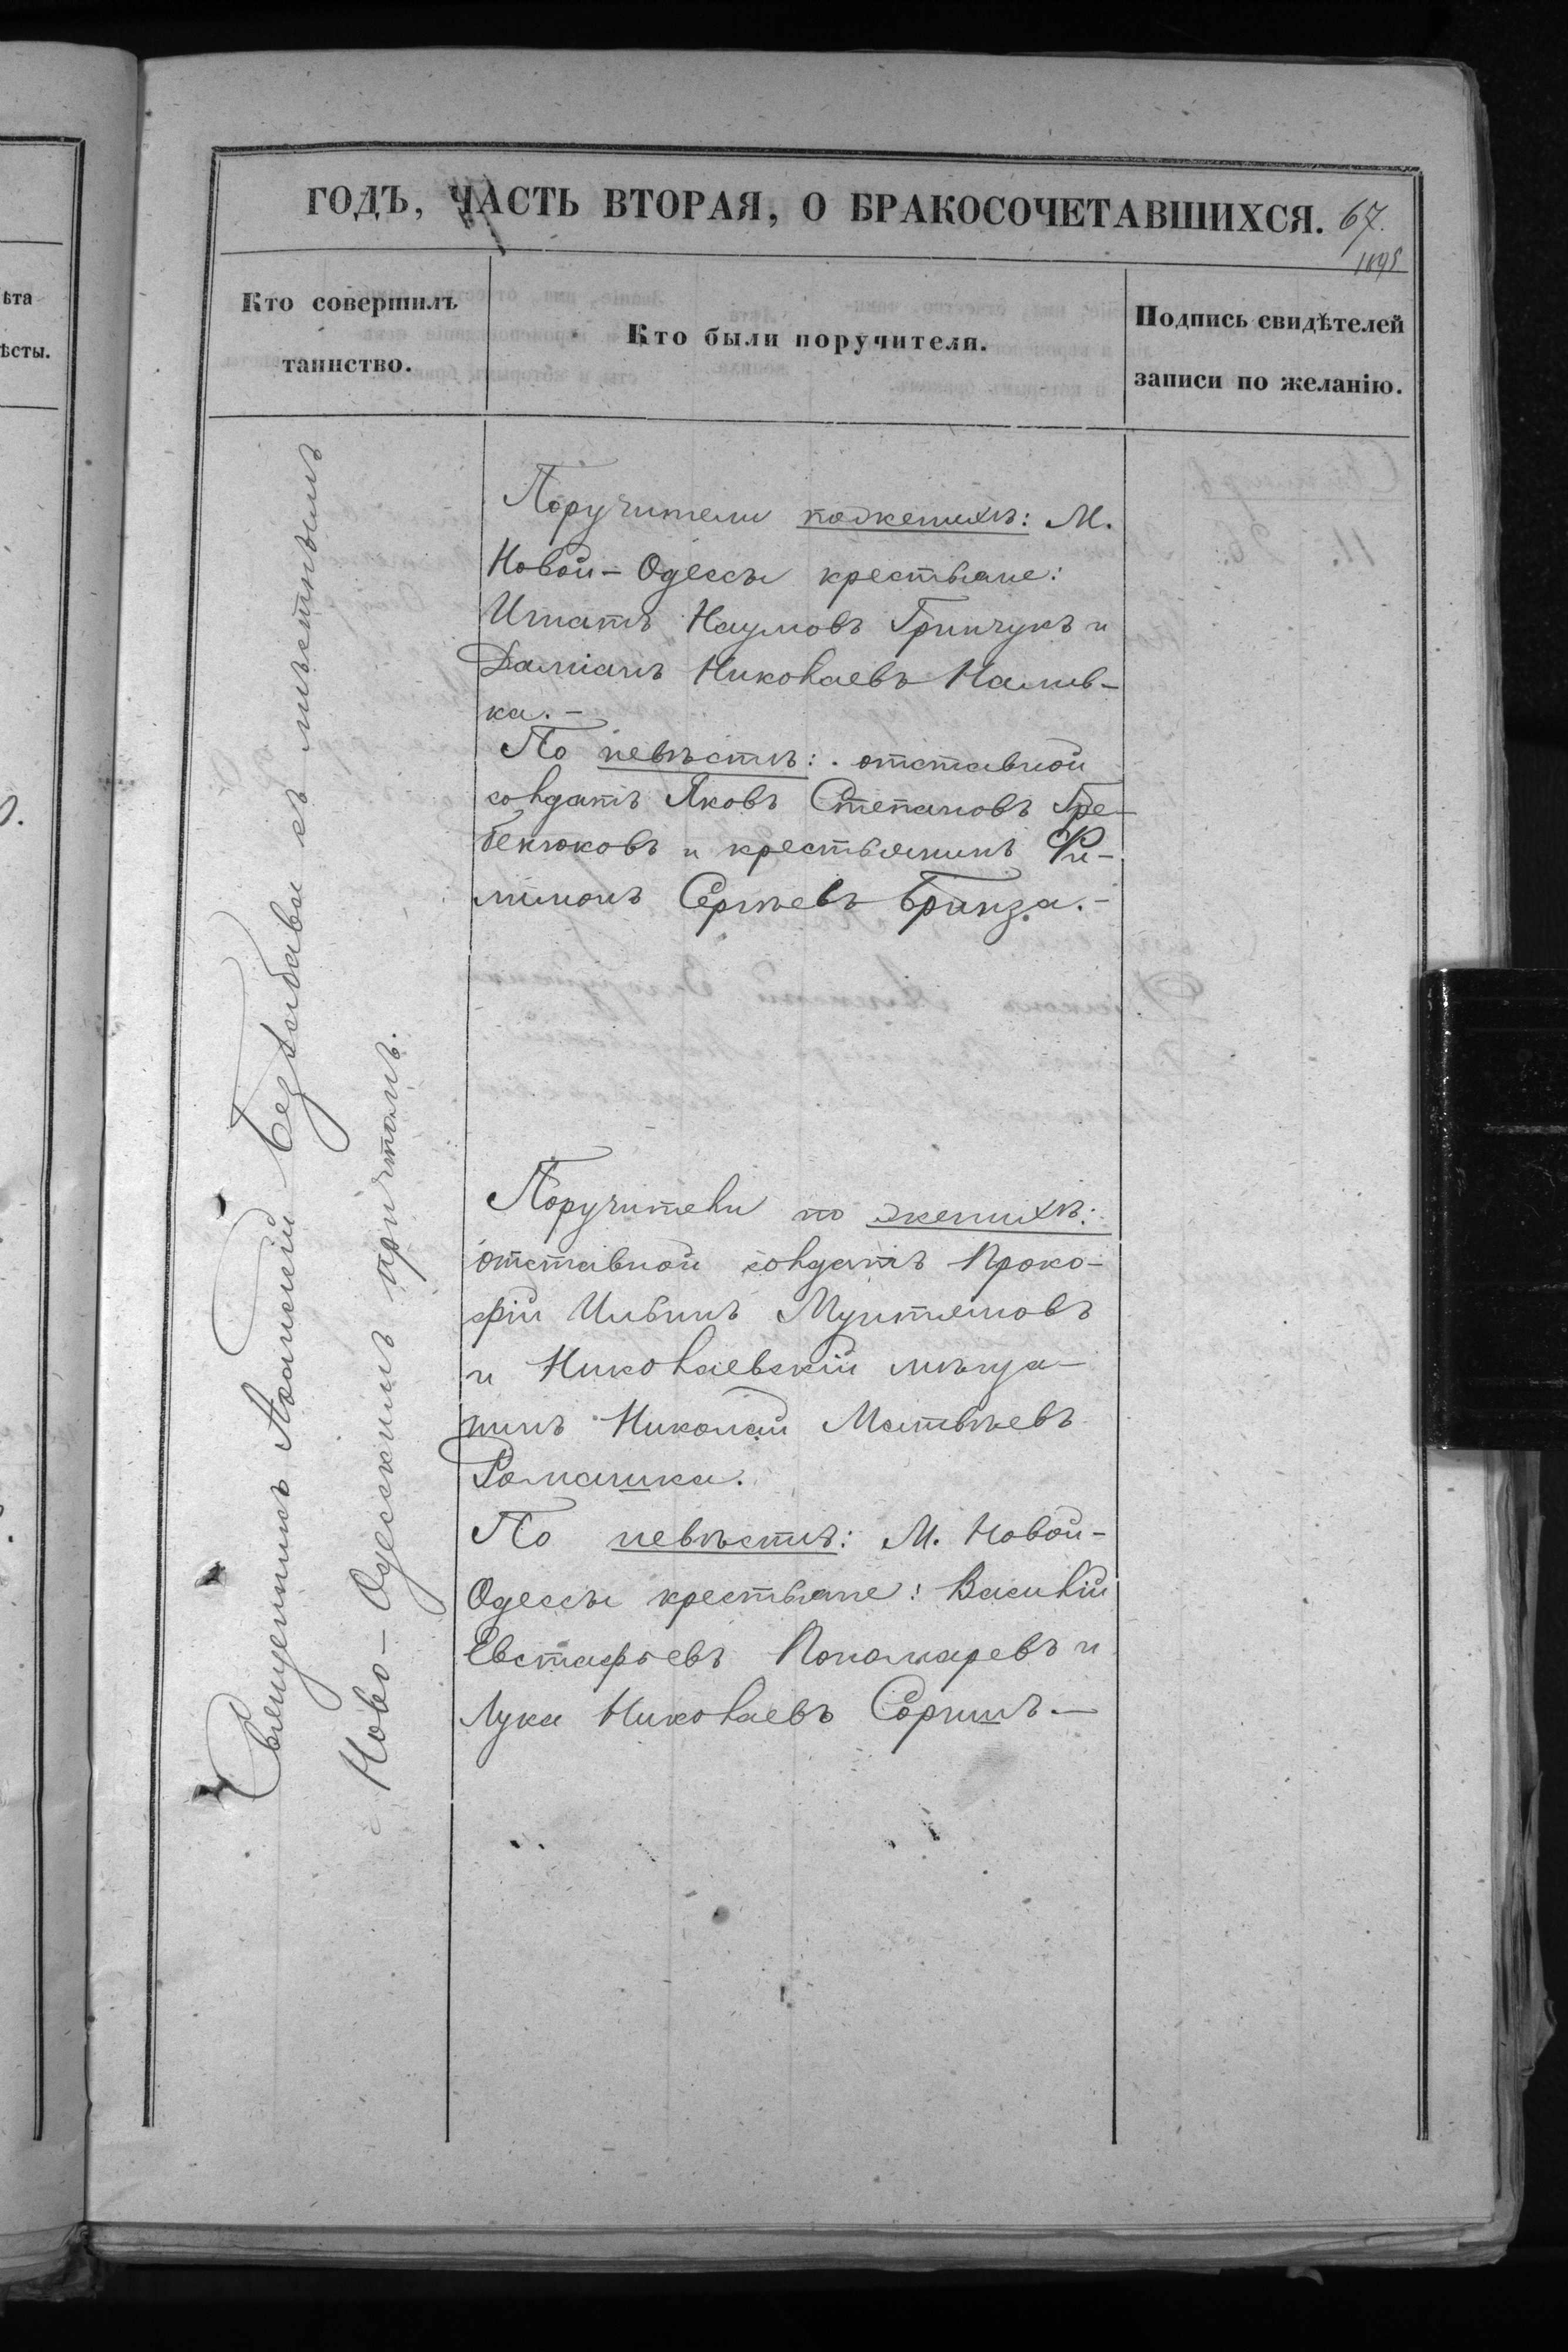 ѣта
ѣсты.
ГОДЪ, ЧАСТЬ ВТОРАЯ, О БРАКОСОЧЕТАВШИХСЯ. 67.
Кто совершилъ
таинство.
Кто были поручители.
Подпись свидѣтелей
записи по желанію.
Священникъ Іоанникій съ мѣстнымъ
Ново-Одесскимъ причтомъ.
Поручители по женихѣ: М.
Новой-Одессы крестьяне:
Игнатъ Наумовъ Гринчукъ и
Даміанъ Николаевъ Налив-
ка.-
По невѣстѣ: отставной
солдатъ Яковъ Степановъ Гре-
бенюковъ и крестьянинъ Фи-
лимонъ Сергѣевъ Бринза.-
Поручители по женихѣ:
отставной солдатъ Проко-
фій Ильинъ Мунтяновъ
и Николаевскій мѣща-
нинъ Николай Матвѣевъ
Ромашка.
По невѣстѣ: М. Новой-
Одессы крестьяне: Василій
Евстафьевъ Пономаревъ и
Лука Николаевъ Соришъ.-